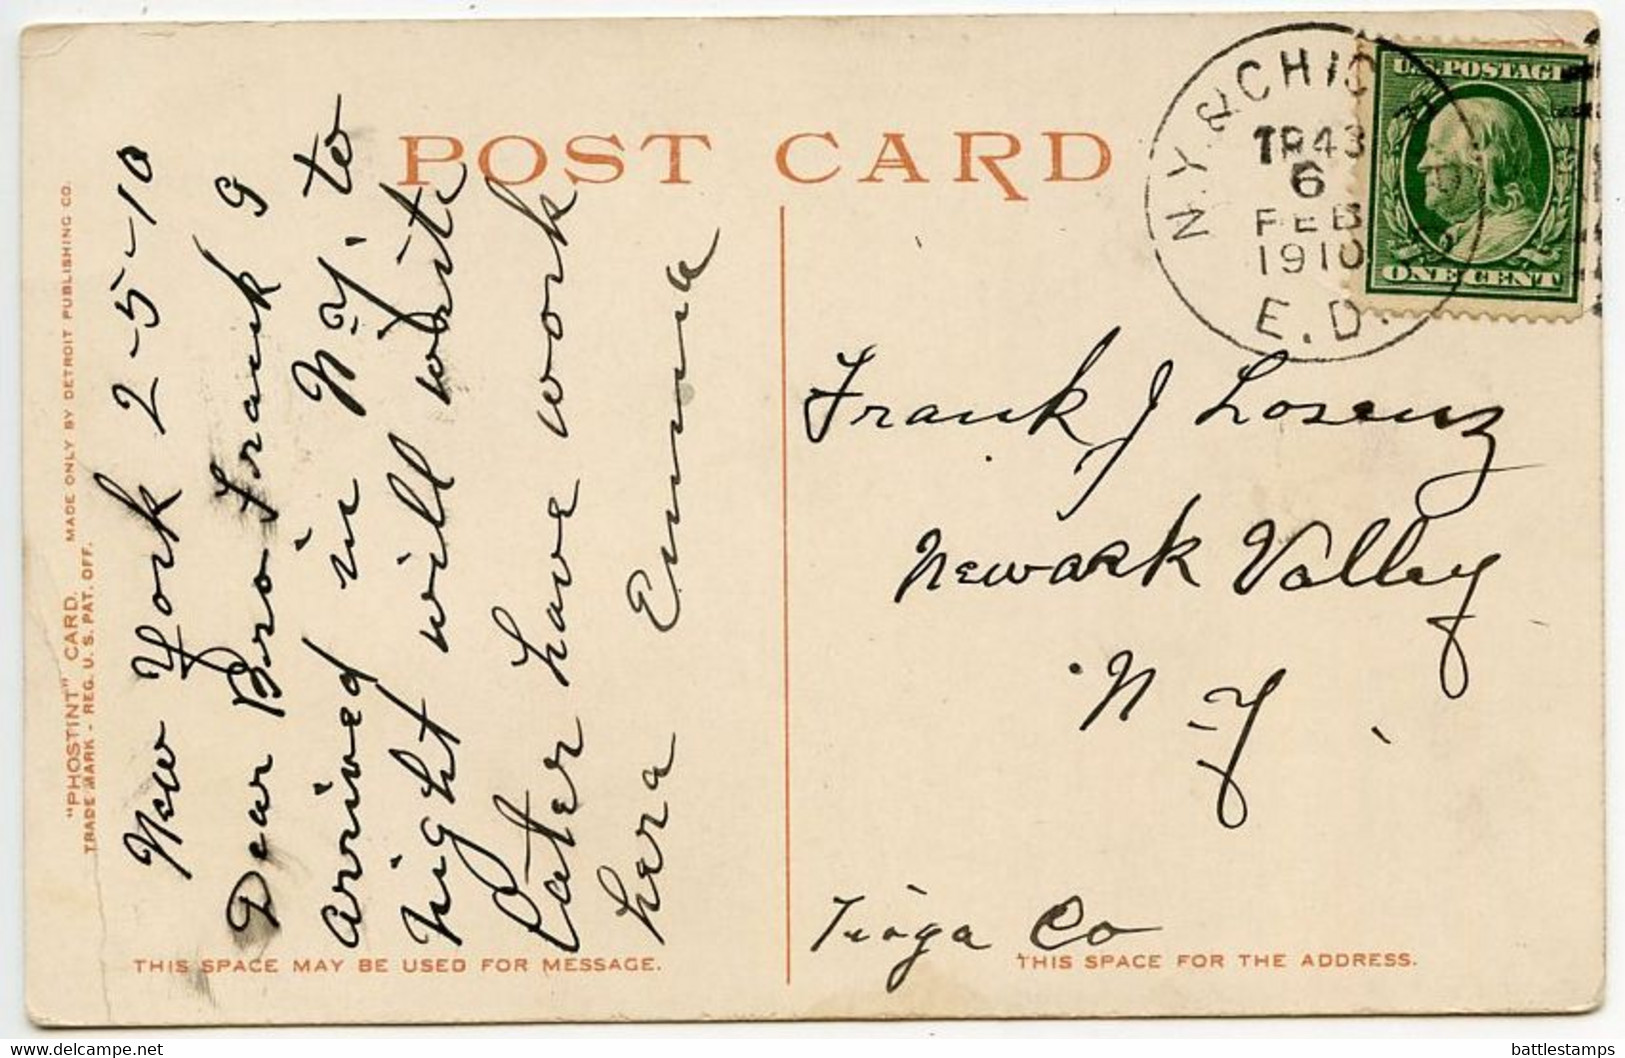 POST CARD
"PHOSTINT" CARD. MADE ONLY BY DETROIT PUBLISHING CO.
TRADE MARK - REG. U. S. PAT. OFF.
New York 2-5-10
Dear Bro Frank
Arrived in N.Y. to
night will write
later have work
here Emma
THIS SPACE MAY BE USED FOR MESSAGE.
N.Y. & CHIC
TR43
6
FEB
1910
E.D.
U.S. POSTAGE
ONE CENT
Frank J Losenz
Newark Valley
N-Y
Tioga Co
THIS SPACE FOR THE ADDRESS.
delcampe.net
battlestamps